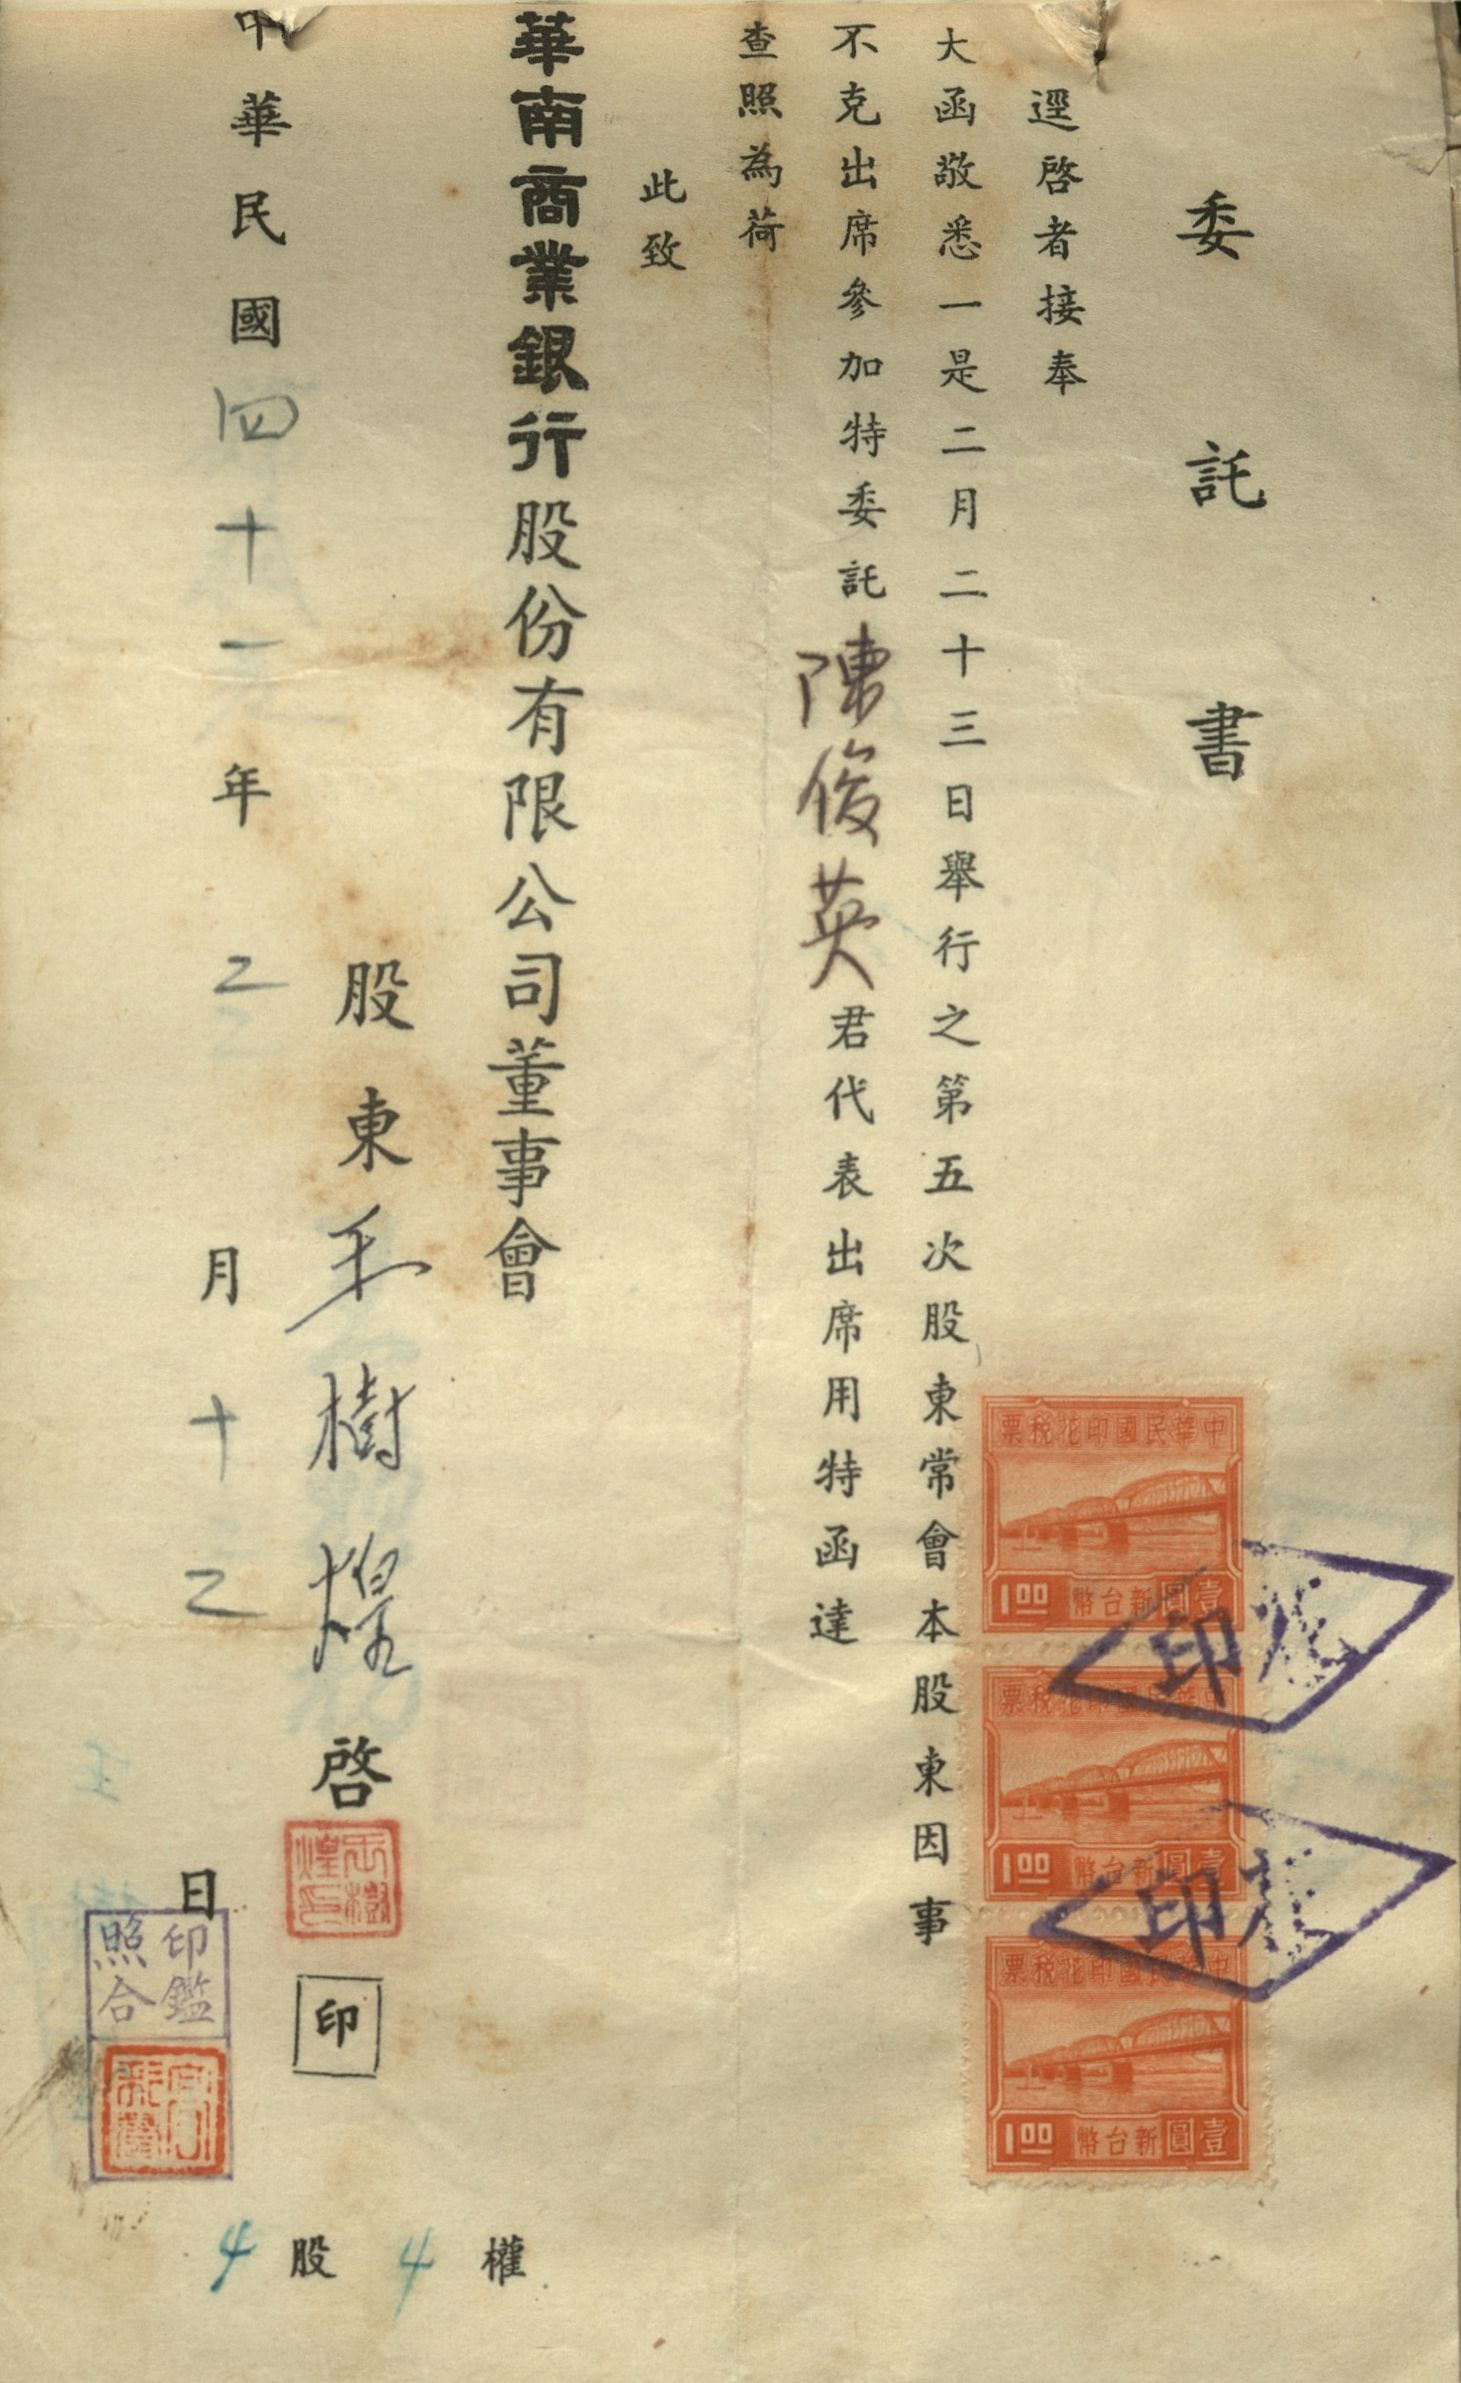 委託書
逕啓者接奉
大函敬悉一是二月二十三日舉行之第五次股東常會本股東因事
不克出席參加特委託陳俊英君代表出席用特函達
查照為荷
此致
華南商業銀行股份有限公司董事會
股東王樹煌啓
印
中華民國四十一年二月十二日
4股4權
中華民國印花稅票
新台幣壹圓
1.00
中華民國印花稅票
新台幣壹圓
1.00
中華民國印花稅票
新台幣壹圓
1.00
印
印
印鑑
照合